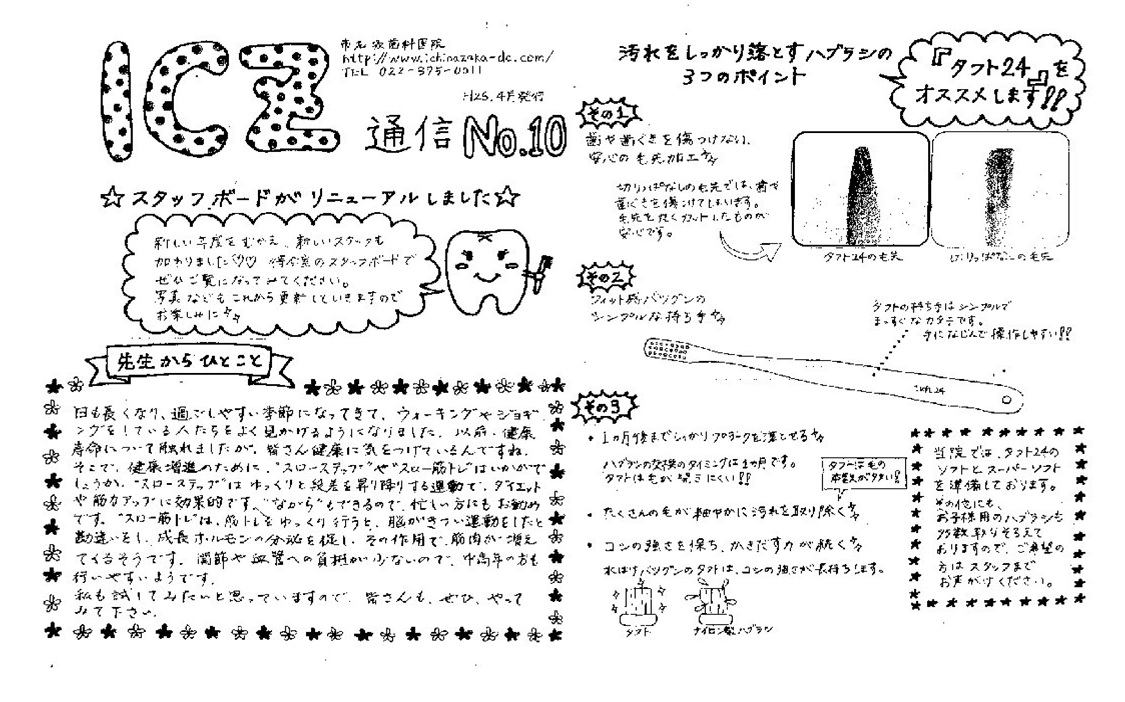 ICZ
市名坂歯科医院
http://www.ichinazaka-dc.com/
TEL 022-375-0311
H25.4月発行
通信 No.10
☆スタッフボードがリニューアルしました☆
新しい年度をむかえ、新しいスタッフも
加わりました♡♡ 待合室のスタッフボードで
ぜひご覧になってみてください。
写真などもこれから更新していきますので
お楽しみに
先生からひとこと
日も長くなり、過ごしやすい季節になってきて、ウォーキングやジョギ
ングをしている人たちをよく見かけるようになりました。以前、健康
寿命について触れましたが、皆さん健康に気をつけているんですね。
そこで、健康増進のために、"スローステップ"や"スロー筋トレ"はいかがで
しょうか。"スローステップ"はゆっくりと段差を昇り降りする運動で、ダイエット
や筋力アップに効果的です。"ながら"もできるので、忙しい方にもお勧め
です。"スロー筋トレ"は、筋トレをゆっくり行うと、脳がきつい運動をしたと
勘違いをし、成長ホルモンの分泌を促し、その作用で、筋肉が増え
てくるそうです。関節や血管への負担が少ないので、中高年の方も
行いやすいようです。
私も試してみたいと思っていますので、皆さんも、ぜひ、やって
みて下さい。
汚れをしっかり落とすハブラシの
3つのポイント
『タフト24』を
オススメします!!
その1
歯や歯ぐきを傷つけない、
安心の毛先加工
切りっぱなしの毛先では、歯や
歯ぐきを傷つけてしまいます。
毛先を丸くカットしたものが
安心です。
タフト24の毛先
切りっぱなしの毛先
その2
フィット感バツグンの
シンプルな持ち手
タフトの持ち手はシンプルで
まっすぐなカタチです。
手になじんで操作しやすい!!
その3
・1ヵ月後までしっかりプラークを落とせる
ハブラシの交換のタイミングは1ヵ月です。
タフトは毛が開きにくい!!
タフトは毛の
・たくさんの毛が細やかに汚れを取り除く
・コシの強さを保ち、かきだす力が続く
水はけバツグンのタフトは、コシの強さが長持ちします。
タフト
ナイロン製ハブラシ
当院では、タフト24の
ソフトとスーパーソフト
を準備しております。
その他にも、
お子様用のハブラシも
多数取りそろえて
おりますので、ご希望の
方はスタッフまで
お声がけください。